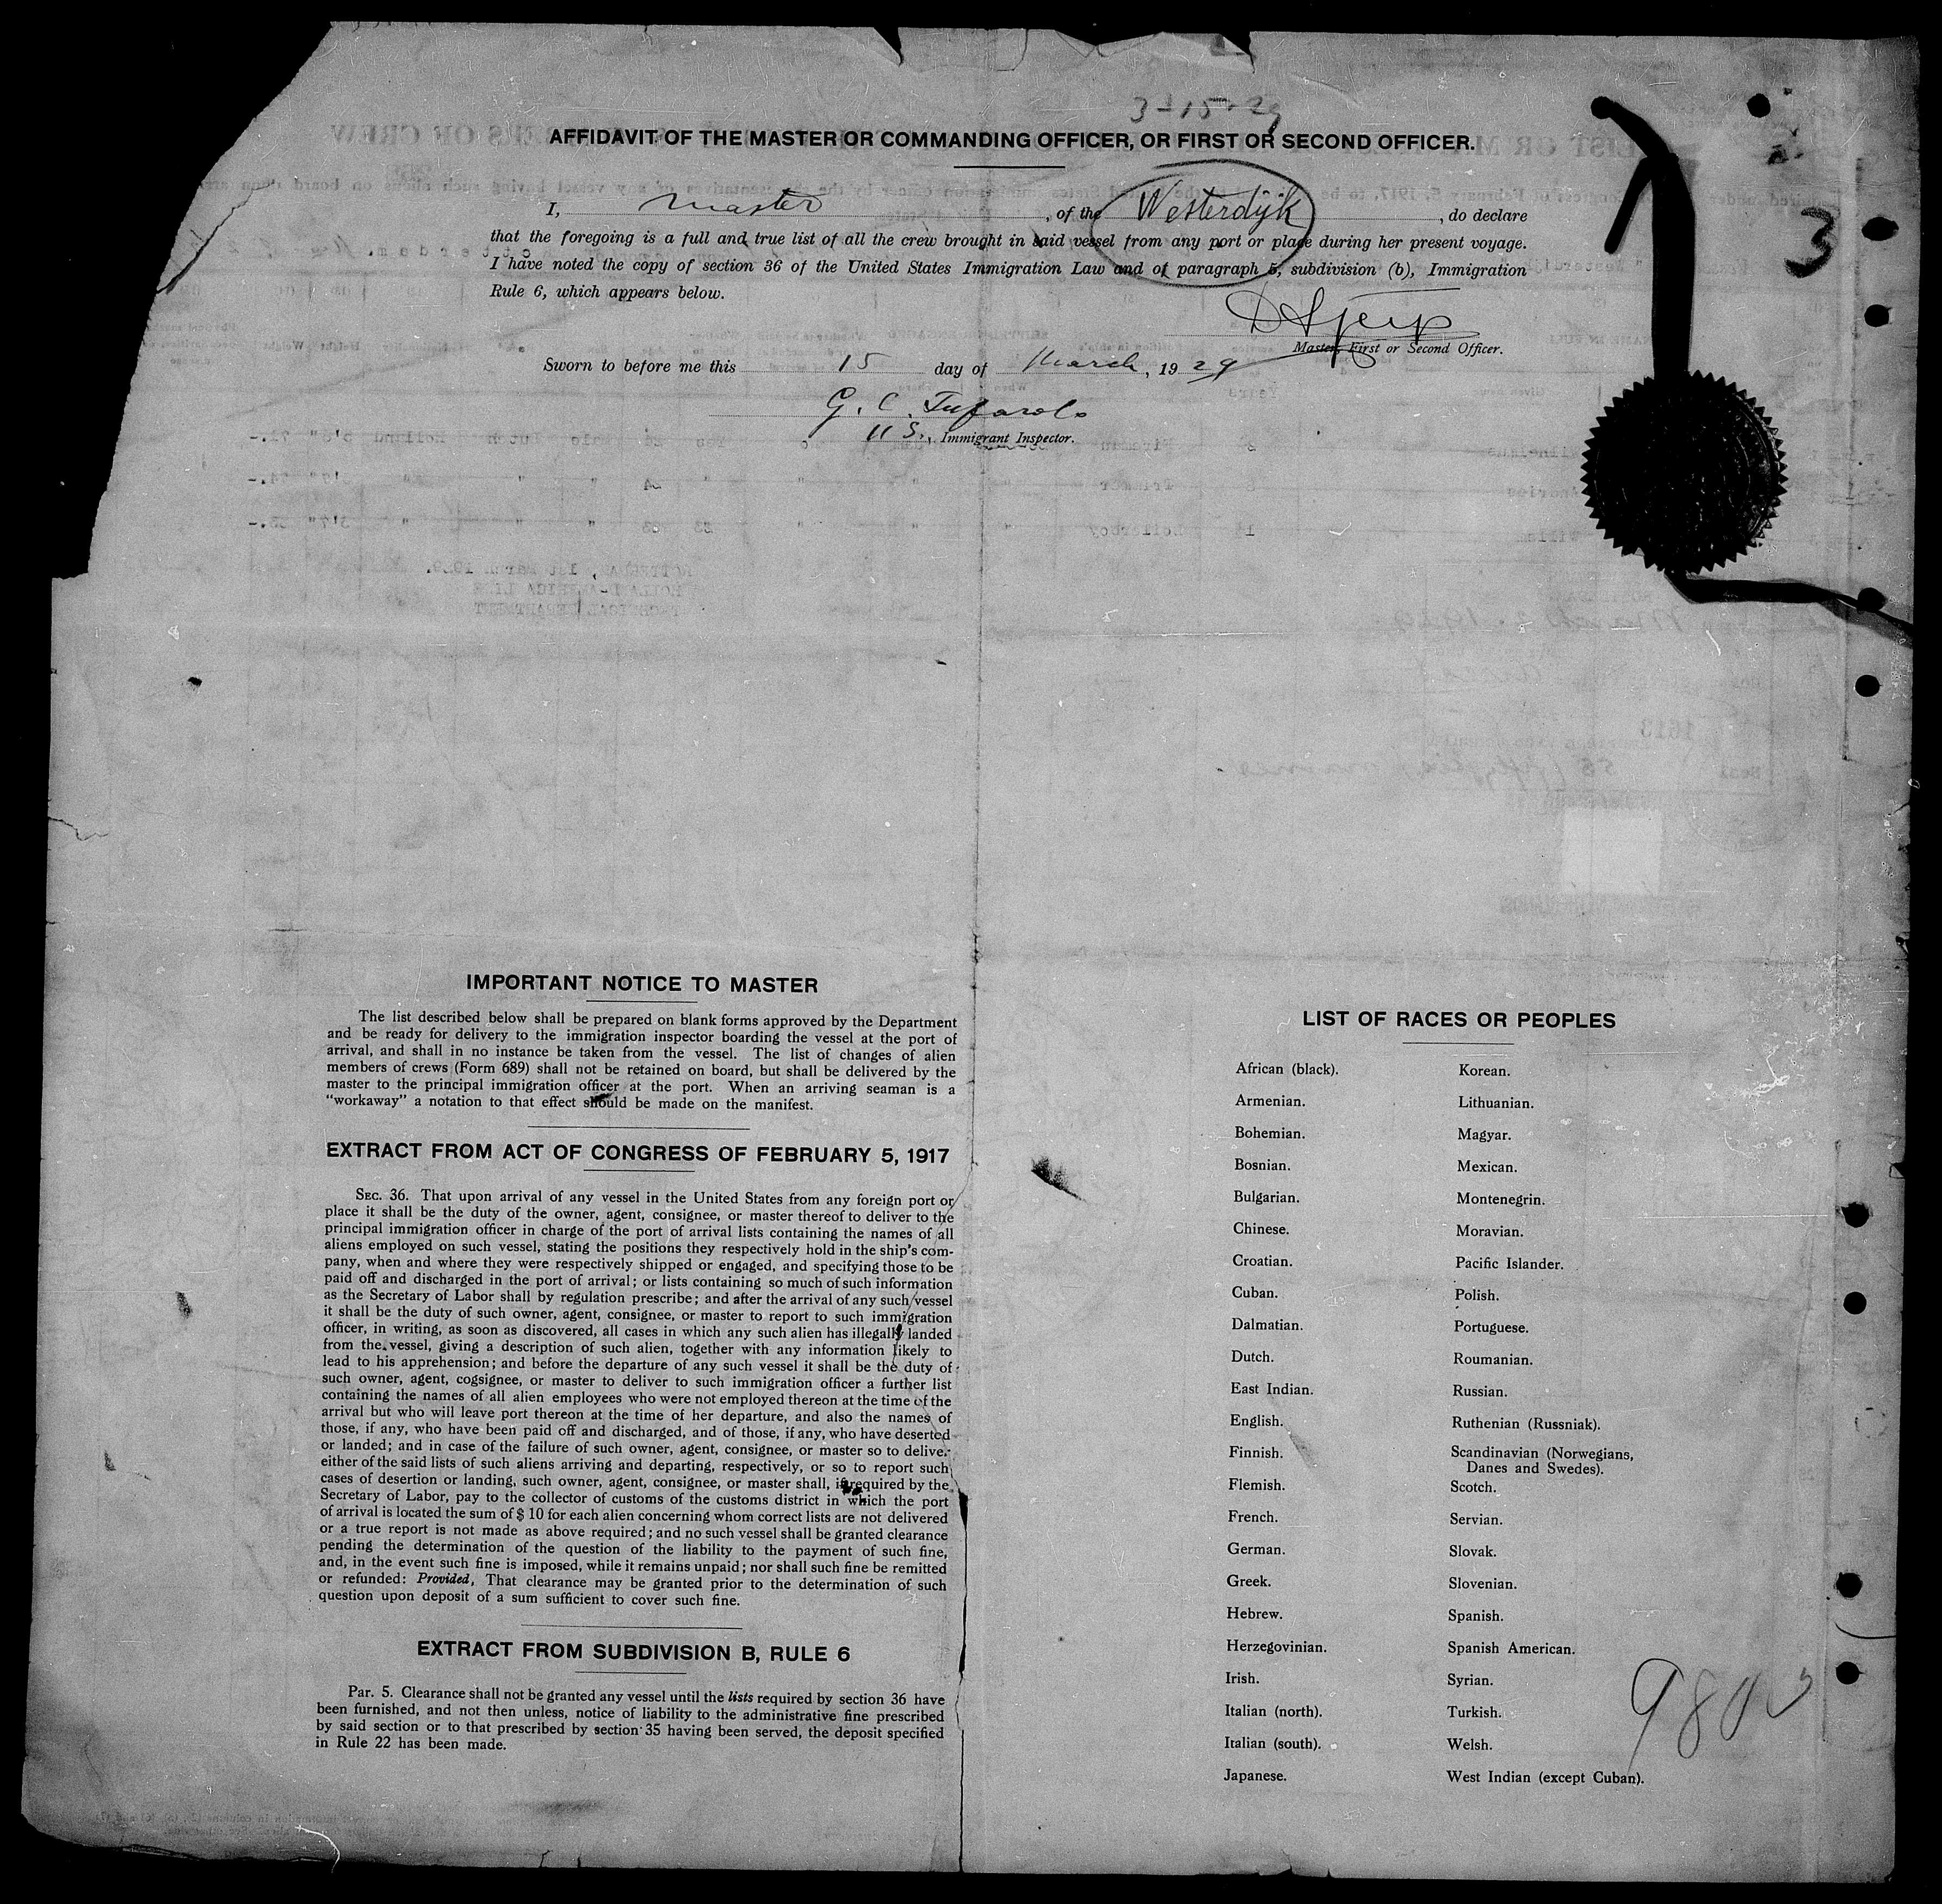 3-15-29
AFFIDAVIT OF THE MASTER OR COMMANDING OFFICER, OR FIRST OR SECOND OFFICER.
I, master, of the Westerdijk, do declare
that the foregoing is a full and true list of all the crew brought in said vessel from any port or place during her present voyage.
I have noted the copy of section 36 of the United States Immigration Law and of paragraph 5, subdivision (b), Immigration
Rule 6, which appears below.
3
Master, First or Second Officer.
Sworn to before me this 15 day of March, 19 29
G. C.
U S., Immigrant Inspector.
IMPORTANT NOTICE TO MASTER
The list described below shall be prepared on blank forms approved by the Department
and be ready for delivery to the immigration inspector boarding the vessel at the port of
arrival, and shall in no instance be taken from the vessel. The list of changes of alien
members of crews (Form 689) shall not be retained on board, but shall be delivered by the
master to the principal immigration officer at the port. When an arriving seaman is a
"workaway" a notation to that effect should be made on the manifest.
EXTRACT FROM ACT OF CONGRESS OF FEBRUARY 5, 1917
SEC. 36. That upon arrival of any vessel in the United States from any foreign port or
place it shall be the duty of the owner, agent, consignee, or master thereof to deliver to the
principal immigration officer in charge of the port of arrival lists containing the names of all
aliens employed on such vessel, stating the positions they respectively hold in the ship's com-
pany, when and where they were respectively shipped or engaged, and specifying those to be
paid off and discharged in the port of arrival; or lists containing so much of such information
as the Secretary of Labor shall by regulation prescribe; and after the arrival of any such vessel
it shall be the duty of such owner, agent, consignee, or master to report to such immigration
officer, in writing, as soon as discovered, all cases in which any such alien has illegally landed
from the vessel, giving a description of such alien, together with any information likely to
lead to his apprehension; and before the departure of any such vessel it shall be the duty of
such owner, agent, cogsignee, or master to deliver to such immigration officer a further list
containing the names of all alien employees who were not employed thereon at the time of the
arrival but who will leave port thereon at the time of her departure, and also the names of
those, if any, who have been paid off and discharged, and of those, if any, who have deserted
or landed; and in case of the failure of such owner, agent, consignee, or master so to deliver
either of the said lists of such aliens arriving and departing, respectively, or so to report such
cases of desertion or landing, such owner, agent, consignee, or master shall, if required by the
Secretary of Labor, pay to the collector of customs of the customs district in which the port
of arrival is located the sum of $ 10 for each alien concerning whom correct lists are not delivered
or a true report is not made as above required; and no such vessel shall be granted clearance
pending the determination of the question of the liability to the payment of such fine,
and, in the event such fine is imposed, while it remains unpaid; nor shall such fine be remitted
or refunded: Provided, That clearance may be granted prior to the determination of such
question upon deposit of a sum sufficient to cover such fine.
EXTRACT FROM SUBDIVISION B, RULE 6
Par. 5. Clearance shall not be granted any vessel until the lists required by section 36 have
been furnished, and not then unless, notice of liability to the administrative fine prescribed
by said section or to that prescribed by section 35 having been served, the deposit specified
in Rule 22 has been made.
LIST OF RACES OR PEOPLES
African (black).
Armenian.
Bohemian.
Bosnian.
Bulgarian.
Chinese.
Croatian.
Cuban.
Dalmatian.
Dutch.
East Indian.
English.
Finnish.
Flemish.
French.
German.
Greek.
Hebrew.
Herzegovinian.
Irish.
Italian (north).
Italian (south).
Japanese.
Korean.
Lithuanian.
Magyar.
Mexican.
Montenegrin.
Moravian.
Pacific Islander.
Polish.
Portuguese.
Roumanian.
Russian.
Ruthenian (Russniak).
Scandinavian (Norwegians,
Danes and Swedes).
Scotch.
Servian.
Slovak.
Slovenian.
Spanish.
Spanish American.
Syrian.
Turkish.
Welsh.
West Indian (except Cuban).